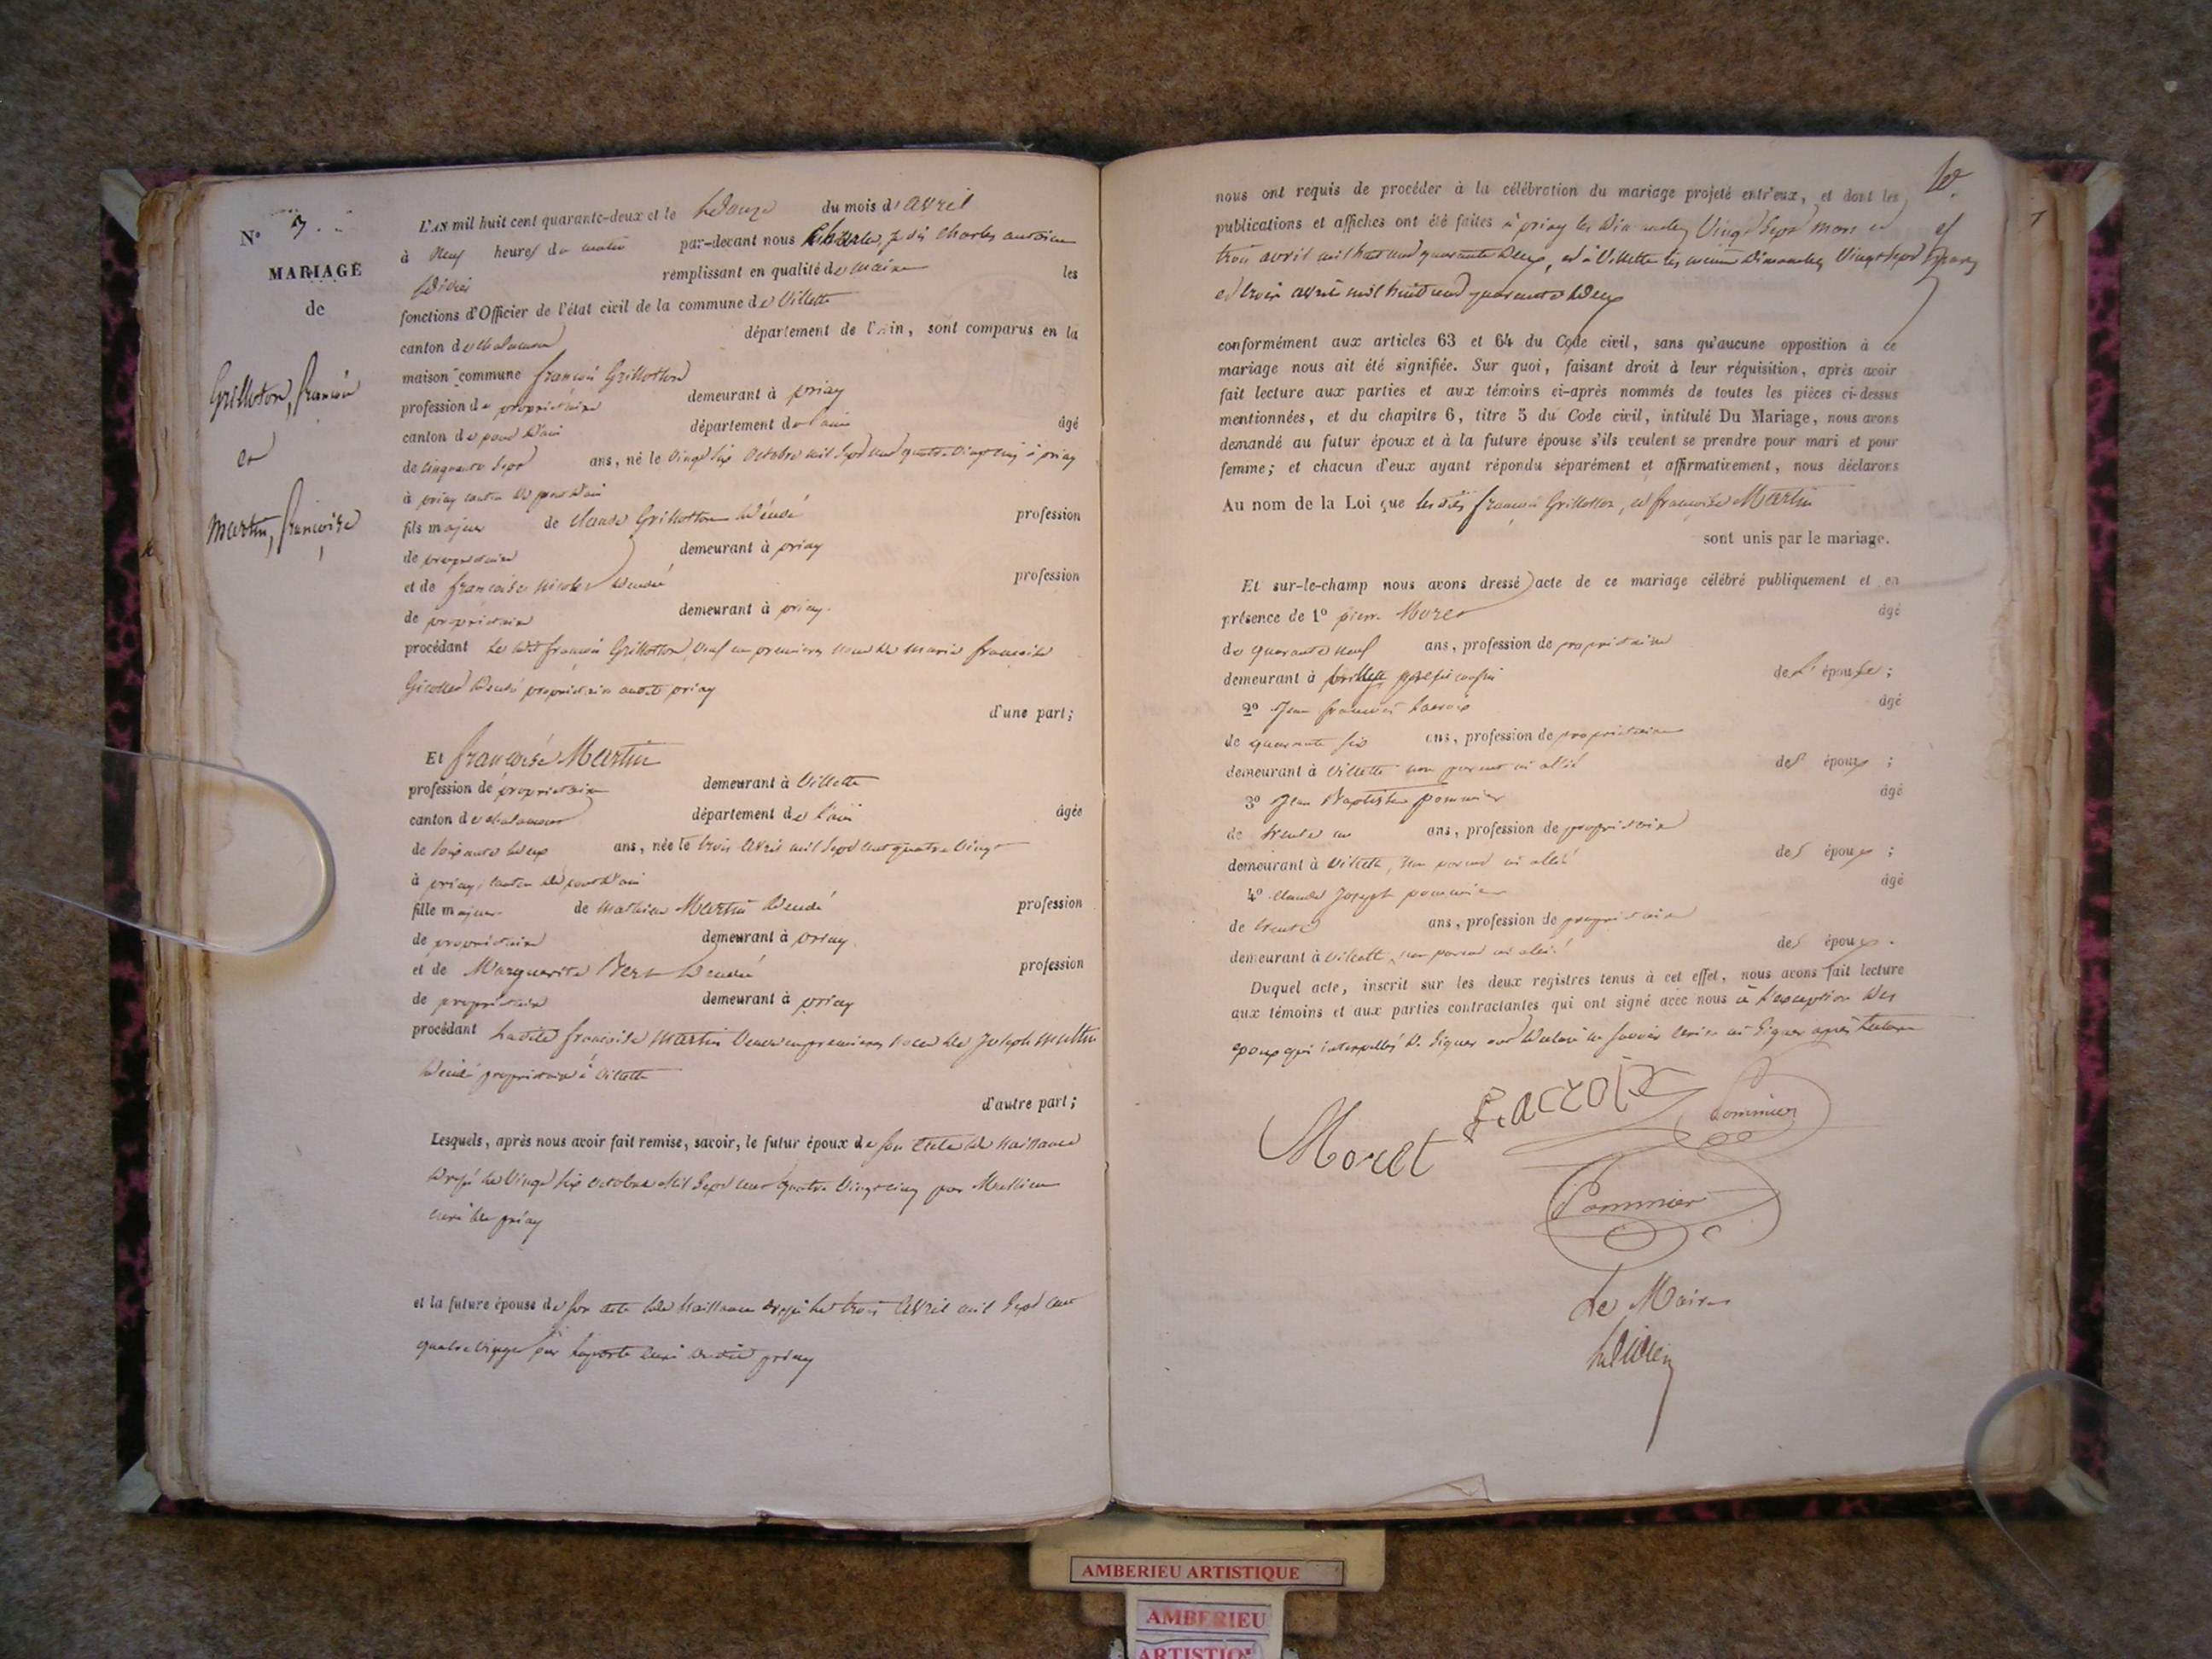 N° 7.
MARIAGE
de
Grilloton, françois
et
Martin, françoise
L'AN mil huit cent quarante-deux et le douze du mois de avril
à neuf heures du matin par-devant nous charles antoine
remplissant en qualité de maire les
fonctions d'Officier de l'état civil de la commune de Villette
canton de chalamont département de l'Ain, sont comparus en la
maison commune françois Grillotton
profession de propriétaire demeurant à priay
canton de pont d'ain département de l'ain âgé
de cinquante sept ans, né le vingt six octobre mil sept cent quatre vingt cinq à priay
à priay canton de pont d'ain
fils majeur de claude Grillotton décédé profession
de propriétaire demeurant à priay
et de françoise nicolas décédée profession
de propriétaire demeurant à priay.
procédant le dit françois Grillotton, veuf en premières noces de marie françoise
décédée propriétaire audit priay
d'une part;
Et françoise Martin
profession de propriétaire demeurant à Villette
canton de chalamont département de l'ain âgée
de soixante deux ans, née le trois avril mil sept cent quatre vingt
à priay, canton de pont d'ain
fille majeure de mathieu Martin décédé profession
de propriétaire demeurant à priay
et de Marguerite décédée profession
de propriétaire demeurant à priay
procédant Ladite françoise martin veuve en premières noces de Joseph
décédé propriétaire à villette
d'autre part;
Lesquels, après nous avoir fait remise, savoir, le futur époux de son acte de naissance
dressé le vingt six octobre mil sept cent quatre vingt cinq par
curé de priay
et la future épouse de son acte de naissance dressé le trois avril mil sept cent
quatre vingt par curé dudit priay
10.
nous ont requis de procéder à la célébration du mariage projeté entr'eux, et dont les
publications et affiches ont été faites à priay les dimanches vingt sept mars et
trois avril mil huit cent quarante deux, et à Villette les mêmes dimanches vingt sept mars
et trois avril mil huit cent quarante deux
conformément aux articles 63 et 64 du Code civil, sans qu'aucune opposition à ce
mariage nous ait été signifiée. Sur quoi, faisant droit à leur réquisition, après avoir
fait lecture aux parties et aux témoins ci-après nommés de toutes les pièces ci-dessus
mentionnées, et du chapitre 6, titre 5 du Code civil, intitulé Du Mariage, nous avons
demandé au futur époux et à la future épouse s'ils veulent se prendre pour mari et pour
femme; et chacun d'eux ayant répondu séparément et affirmativement, nous déclarons
Au nom de la Loi que les dits françois Grillotton, et françoise Martin
sont unis par le mariage.
Et sur-le-champ nous avons dressé acte de ce mariage célébré publiquement et en
présence de 1° pierre Moret âgé
de quarante neuf ans, profession de propriétaire
demeurant à de l'épouse;
2° Jean françois Lacroix âgé
de quarante six ans, profession de propriétaire
demeurant à Villette non parent ni allié des époux;
3° Jean Baptiste pommier âgé
de trente un ans, profession de propriétaire
demeurant à Villette, non parent ni allié des époux;
4° claude Joseph pommier âgé
de trente ans, profession de propriétaire
demeurant à Villette, non parent ni allié des époux.
Duquel acte, inscrit sur les deux registres tenus à cet effet, nous avons fait lecture
aux témoins et aux parties contractantes qui ont signé avec nous à l'exception des
époux qui interpellés de signer ont déclaré ne savoir écrire ni signer après lecture
Moret
Lacroix
Pommier
Pommier
Le Maire
AMBERIEU ARTISTIQUE
AMBERIEU
ARTISTIQU